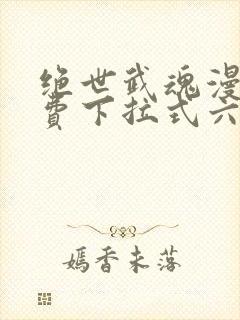 绝世武魂漫
费下拉式六
嫣香未落